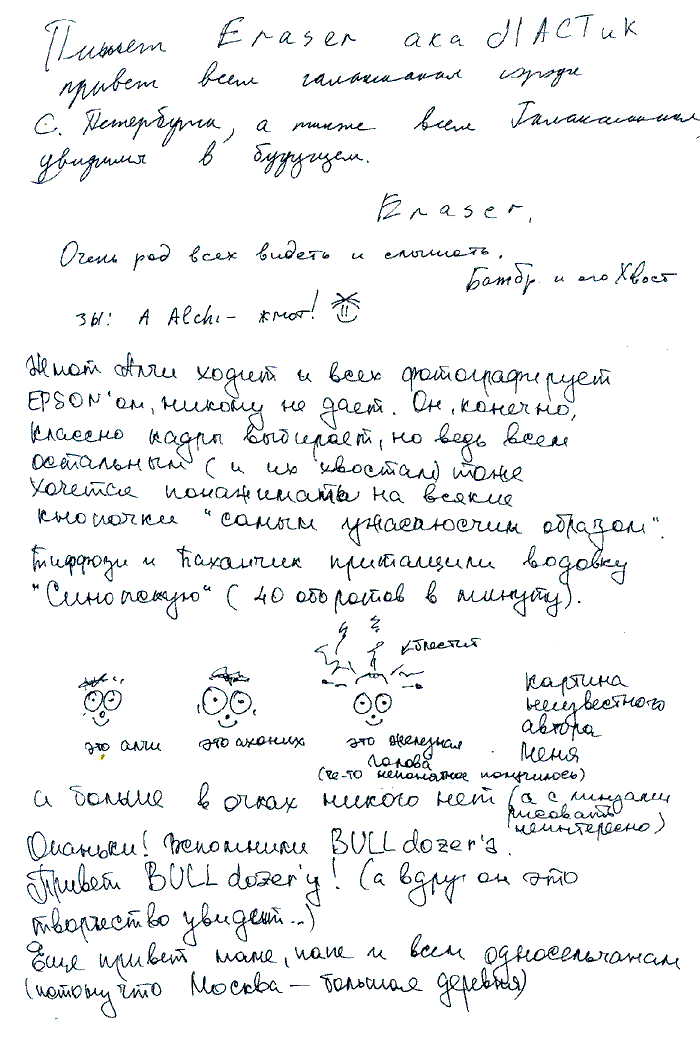 Пишет Eraser aka ЛАСТиК
привет всем галактианам города
С. Петербурга, а также всем
увидимся в будущем.
Eraser.
Очень рад всех видеть и слышать.
Батбр и его Хвост
ЗЫ: А Alchi - жмот!
Жмот Алчи ходит и всех фотографирует
EPSON'ом, никому не дает. Он, конечно,
классно кадры выбирает, но ведь всем
остальным (и их хвостам) тоже
хочется понажимать на всякие
кнопочки "самым ужасающим образом".
и Паханчик притащили водовку
"Синопскую" (40 оборотов в минуту).
блестит
это алчи
это аханих
это железная голова
(че-то непонятное получилось)
картина
неизвестного
автора
меня
и больше в очках никого нет (а с линзами
рисовать
неинтересно)
Опаньки! Вспомнили BULLdozer'a.
Привет BULLdozer'у! (а вдруг он это
творчество увидит...)
Еще привет маме, папе и всем односельчанам
(потому что Москва - большая деревня)